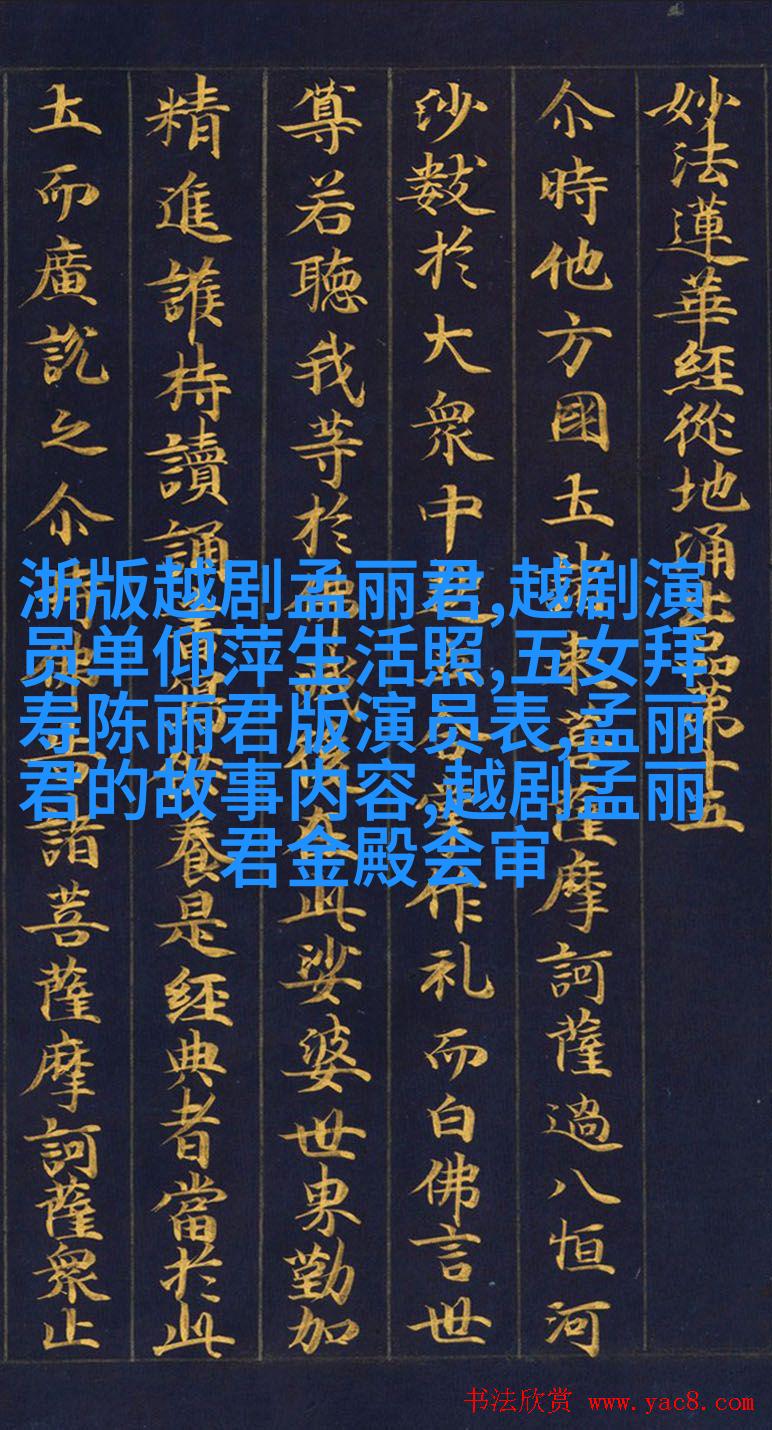 妙法蓮華經從地涌出品第十五
尒時他方國土諸来菩薩摩訶薩過八恒河
沙數於大衆中起合掌作礼而白佛言世
尊若聴我等於佛滅後在此娑婆世界勤加
精進護持讀誦書供養是經典者當於此
土而廣說之尒時佛告諸菩薩摩訶薩衆止
浙版越剧孟丽君,越剧演
员单仰萍生活照,五女拜
寿陈丽君版演员表,孟丽
君的故事内容,越剧孟丽
君金殿会审
书法欣赏 www.yac8.com